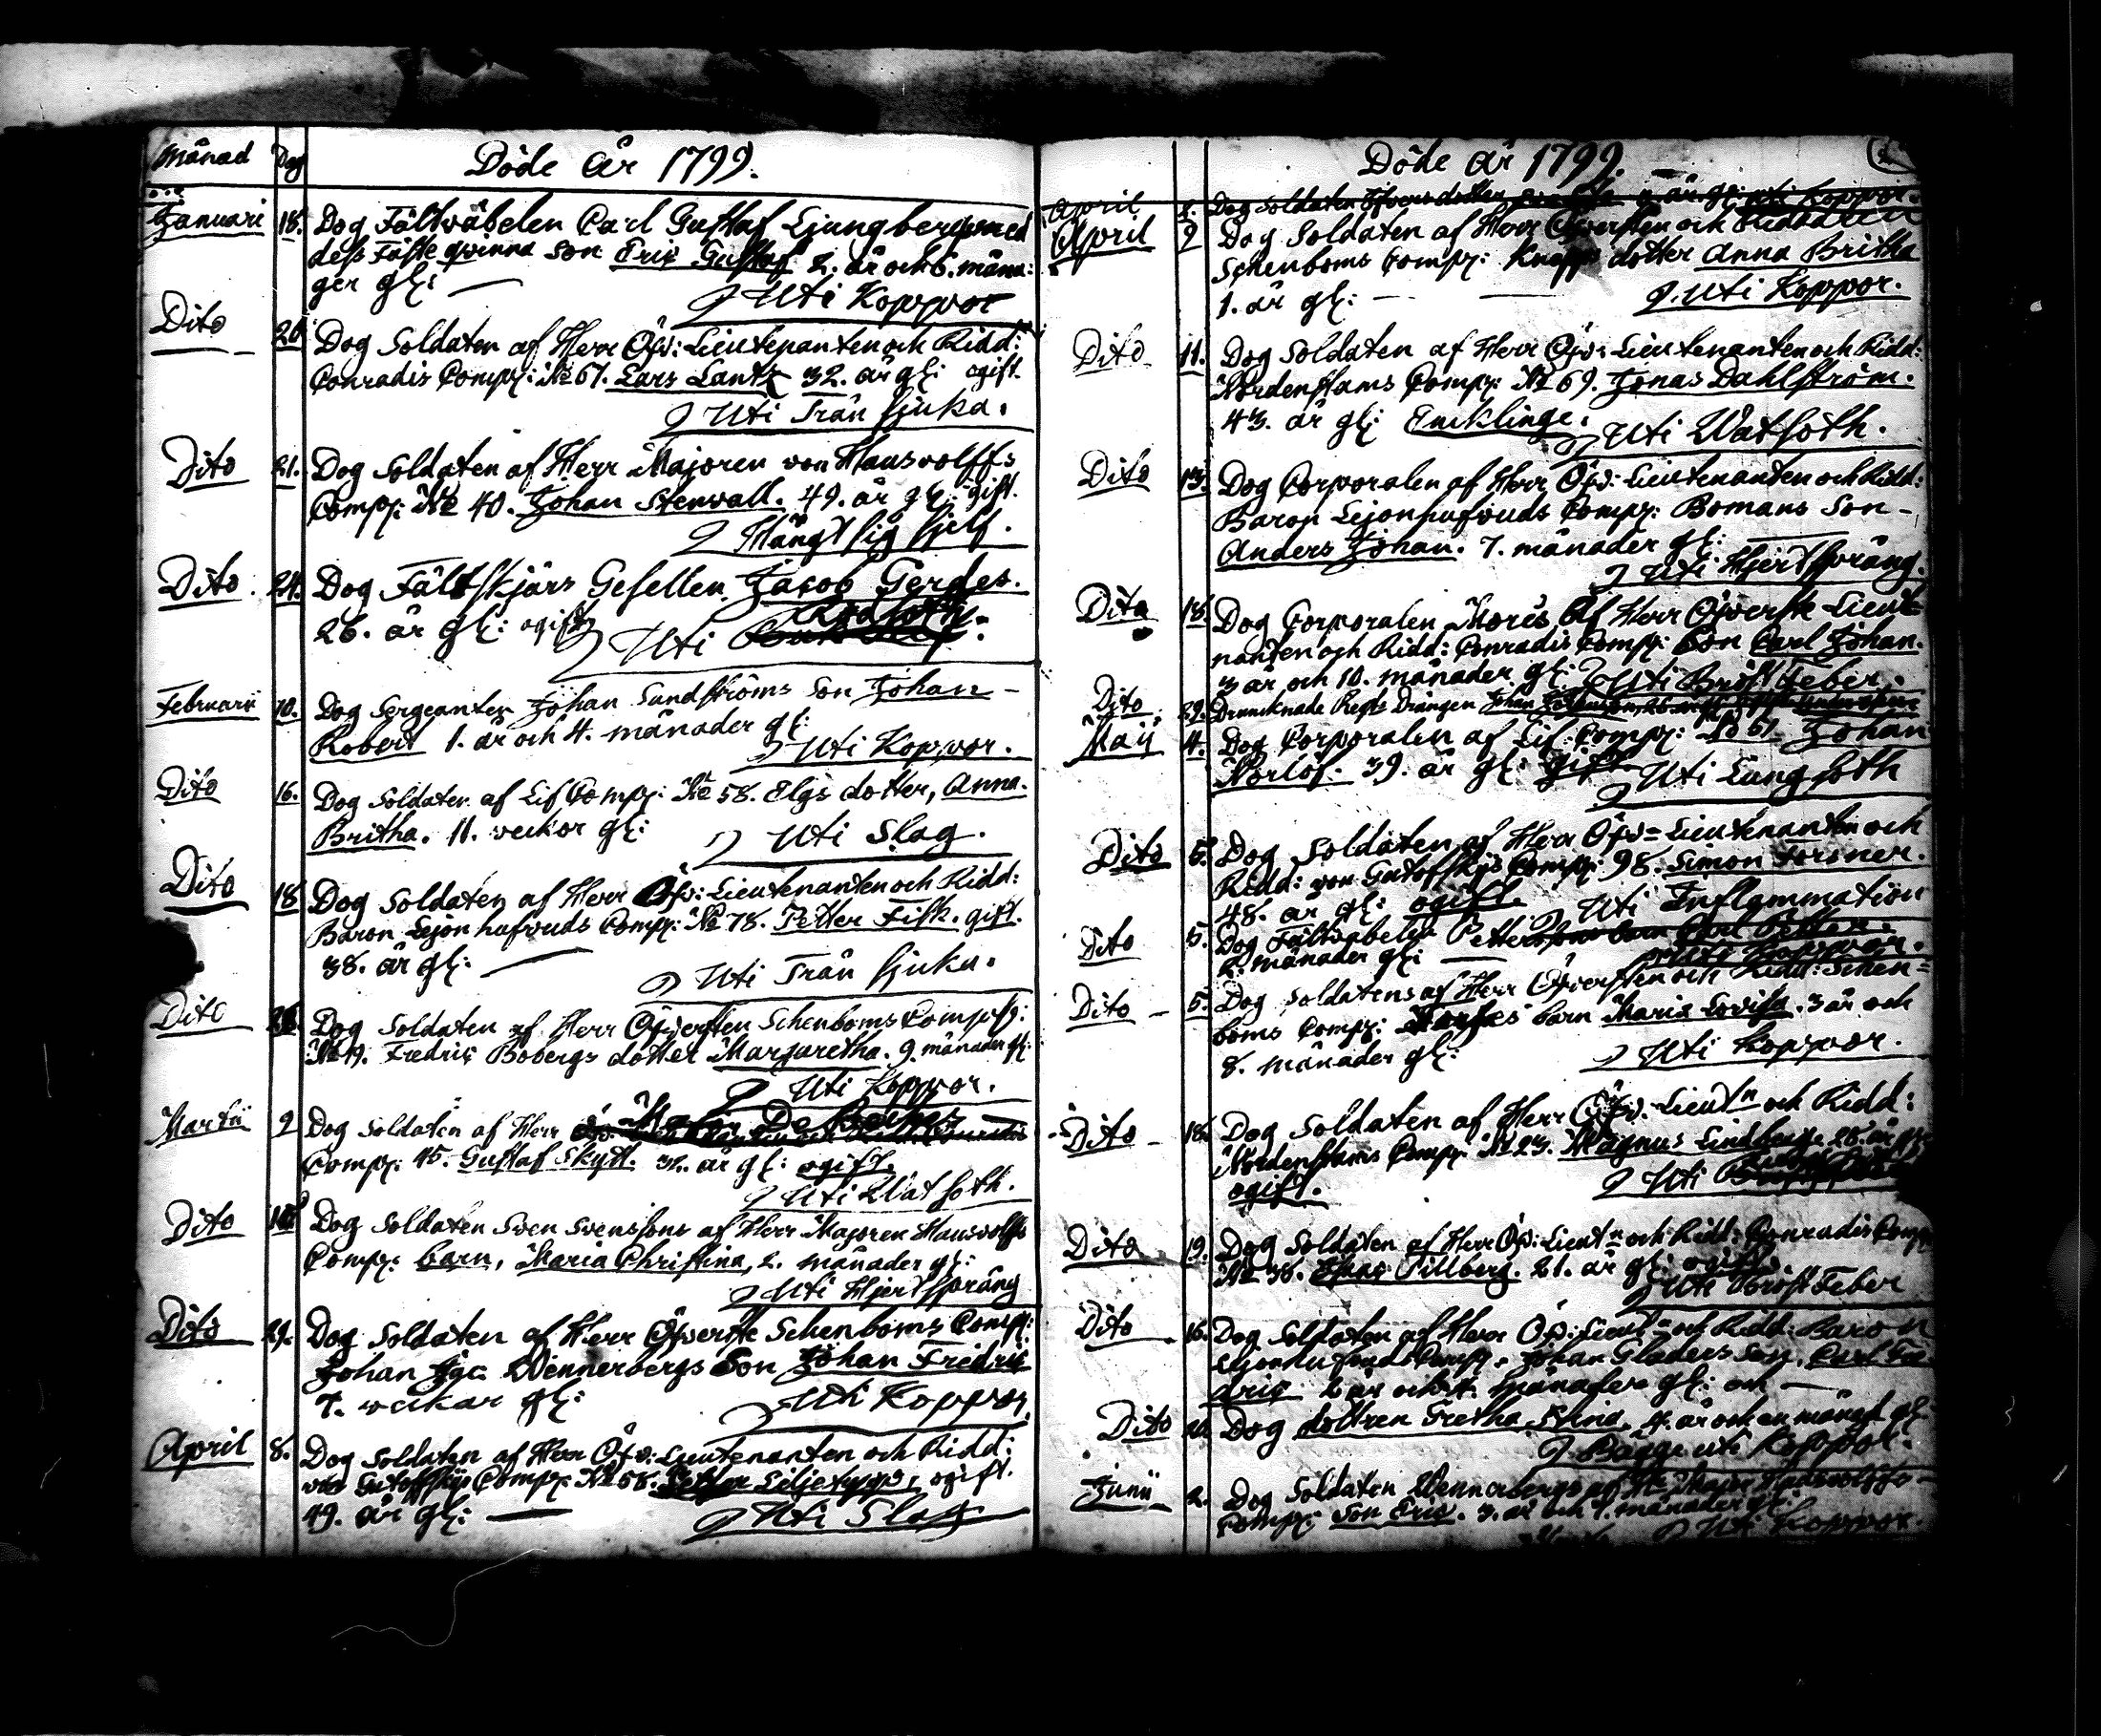 Månad Dag Döde År 1799.
1799
Januari 18. Dog Fältväbelen Carl Gustaf Ljungbergs med
dess Fäste qvinna Son Eric Gustaf 2. år och 6. måna:
der gl:
Uti Koppor
Dito 20. Dog Soldaten af Herr Öfv: Lieutenanten och Ridd:
Conradis Comp: No 67. Lars Lantz 32. år gl: ogift.
Uti Trånsjuka.
Dito 21. Dog Soldaten af Herr Majoren von Hausvolffs
Comp: No 40. Johan Stenvall. 49. år gl: gift.
Hängt sig sjelf.
Dito 24. Dog Fältskjärs Gesellen Jacob Gerdes.
26. år gl: ogift
Rödsoth
Uti
Februarii 10. Dog Sergeanten Johan Sundströms Son Johan
Robert 1. år och 4. månader gl:
Uti Koppor.
Dito 16. Dog Soldaten af Lif Comp: No 58. Elgs dotter, Anna
Britha. 11. veckor gl:
Uti Slag.
Dito 18 Dog Soldaten af Herr Öfv: Lieutenanten och Ridd:
Baron Lejonhufvuds Comp: No 78. Petter Fisk. gift.
38. år gl:
Uti Trånsjuka.
Dito Dog Soldaten af Herr Öfversten Schenboms Comp:
No 19. Fredric Bobergs dotter Margaretha. 9. månader gl:
Uti Koppor.
Martii 9 Dog Soldaten af Herr Major De Besches
Comp: 45. Gustaf Skytt. 32. år gl: ogift.
Uti Watsoth.
Dito Dog Soldaten Sven Svenssons af Herr Majoren Hausvolffs
Comp: barn, Maria Christina, 2. månader gl:
Uti Hjertsprång
Dito 29. Dog Soldaten af Herr Öfverste Schenboms Comp:
Johan Jac. Wennerbergs Son Johan Fredric
7. veckor gl:
Uti Koppor
April 8. Dog Soldaten af Herr Öfv: Lieutenanten och Ridd:
von Gutoffskys Comp: No 58. Petter Liljequist, ogift.
49. år gl:
Uti Slag
Döde År 1799.
April 8. Dog Soldaten dotter år gl: uti Koppor.
April 9 Dog Soldaten af Herr Öfversten och Riddaren
Schenboms Comp: Knapps dotter Anna Britha
1. år gl:
Uti Koppor.
Dito 11. Dog Soldaten af Herr Öfv: Lieutenanten och Ridd:
Nordenstams Comp: No 69. Jonas Dahlström.
43. år gl: Encklinge.
Uti Watsoth.
Dito 13. Dog Corporalen af Herr Öfv: Lieutenanten och Ridd:
Baron Lejonhufvuds Comp: Bomans Son
Anders Johan. 7. månader gl:
Uti Hjertsprång.
Dito 18. Dog Corporalen Morés af Herr Öfverste Lieut
nanten och Ridd: Conradis Comp: Son Carl Johan.
3 år och 10. månader gl: Uti Bröst Feber.
Dito 29. Drunknade Regts Drängen Johan
Maij 4. Dog Corporalen af Lif: Comp: No 61 Johan
Norlöf. 39. år gl: gift
Uti Lungsoth
Dito 5. Dog Soldaten af Herr Öfv= Lieutenanten och
Ridd: von Gutoffskys Comp: 98. Simon Forsner.
48. år gl: ogift.
Uti Inflammation
Dito 5. Dog Fältväbeln Petterssons barn Carl Petter.
2. månader gl:
Uti Koppor.
Dito 5. Dog Soldatens af Herr Öfversten och Ridd: Schen=
boms Comp: barn Maria Lovisa. 3 år och
8. månader gl:
Uti Koppor.
Dito 18. Dog Soldaten af Herr Öfv: Lieutn och Ridd:
Nordenstams Comp: No 23. Magnus Lindberg 28. år gl:
ogift.
Uti
Dito 19. Dog Soldaten af Herr Öfv: Lieutn och Ridd: Conradis Comp:
No 38. Tillberg. 21. år gl: ogift
Uti Bröst Feber
Dito 16. Dog Soldaten af Herr Öfv: Lieutn och Ridd: Baron
Lejonhufvuds Comp: Johan Gladers Son, Carl Fre
dric 2 år och 4. månader gl: och
Dito Dog dottren Gretha Stina. 4. år och en månad gl:
Bägge uti Koppor.
Junii 2. Dog Soldaten Wennerbergs af Hr Major Hausvolffs
Comp: Son Eric. 3. år och 7. månader gl:
Uti Koppor.